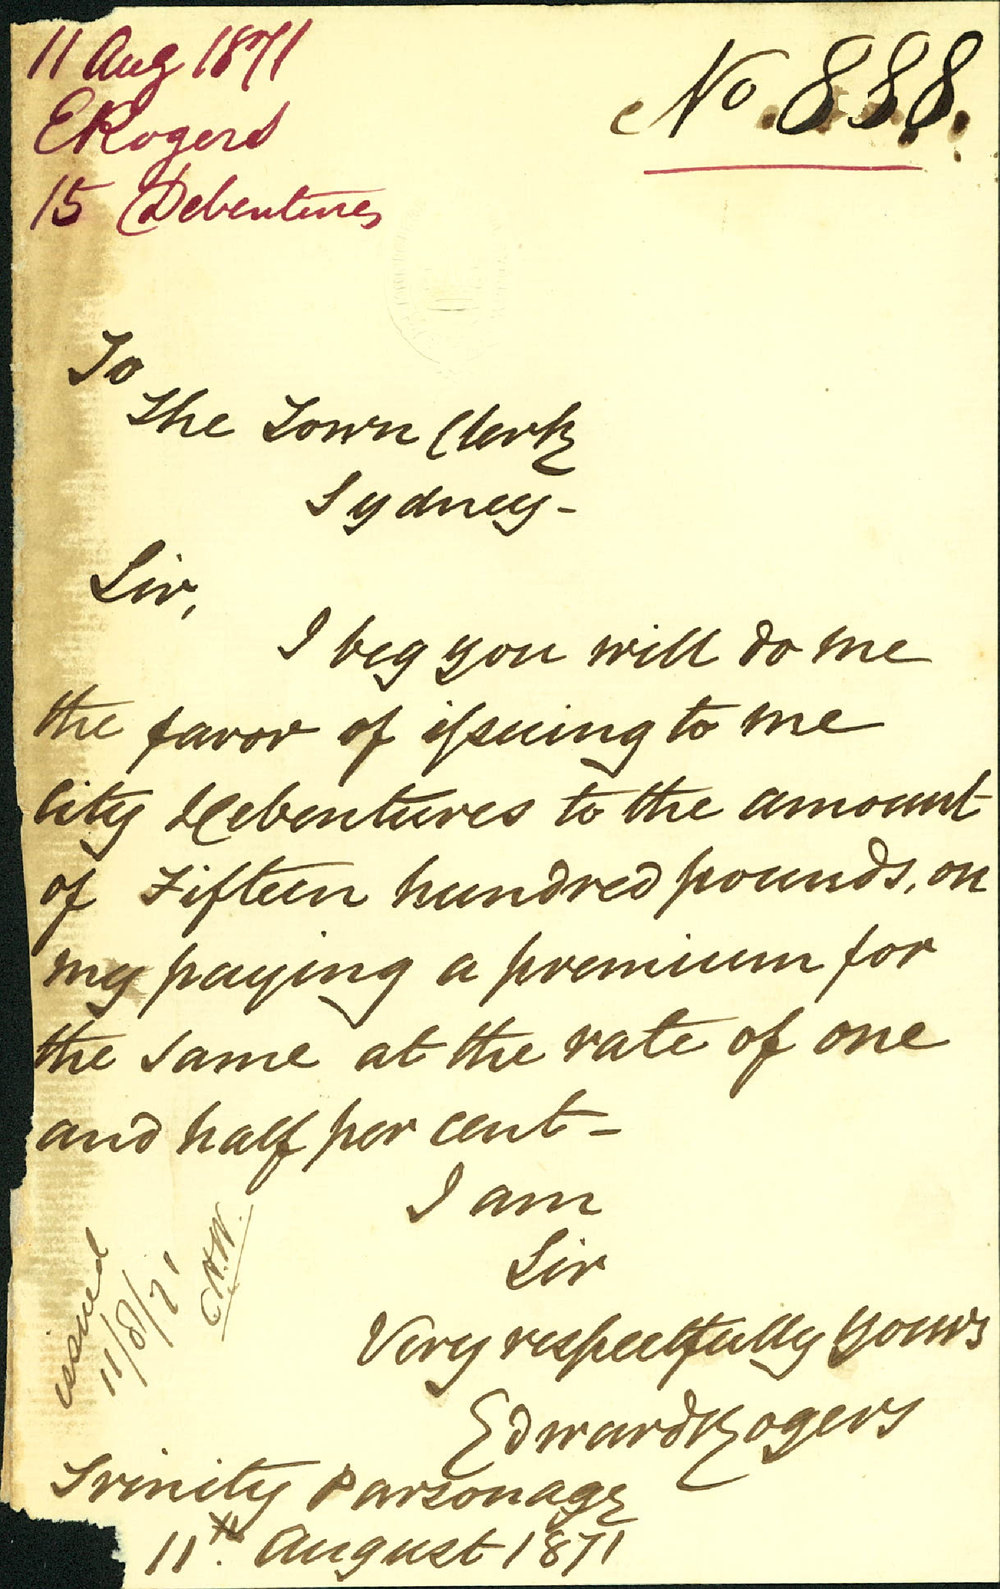 11 Aug 1871
E Rogers
15 Debentures
No. 888.
To
The Town Clerk
Sydney -
Sir,
I beg you will do me
the favor of issuing to me
City Debentures to the amount
of Fifteen hundred pounds, on
my paying a premium for
the same at the rate of one
and half per cent -
I am
Sir
Very respectfully yours
Edward Rogers
Trinity Parsonage
11th. August 1871
issued
11/8/71